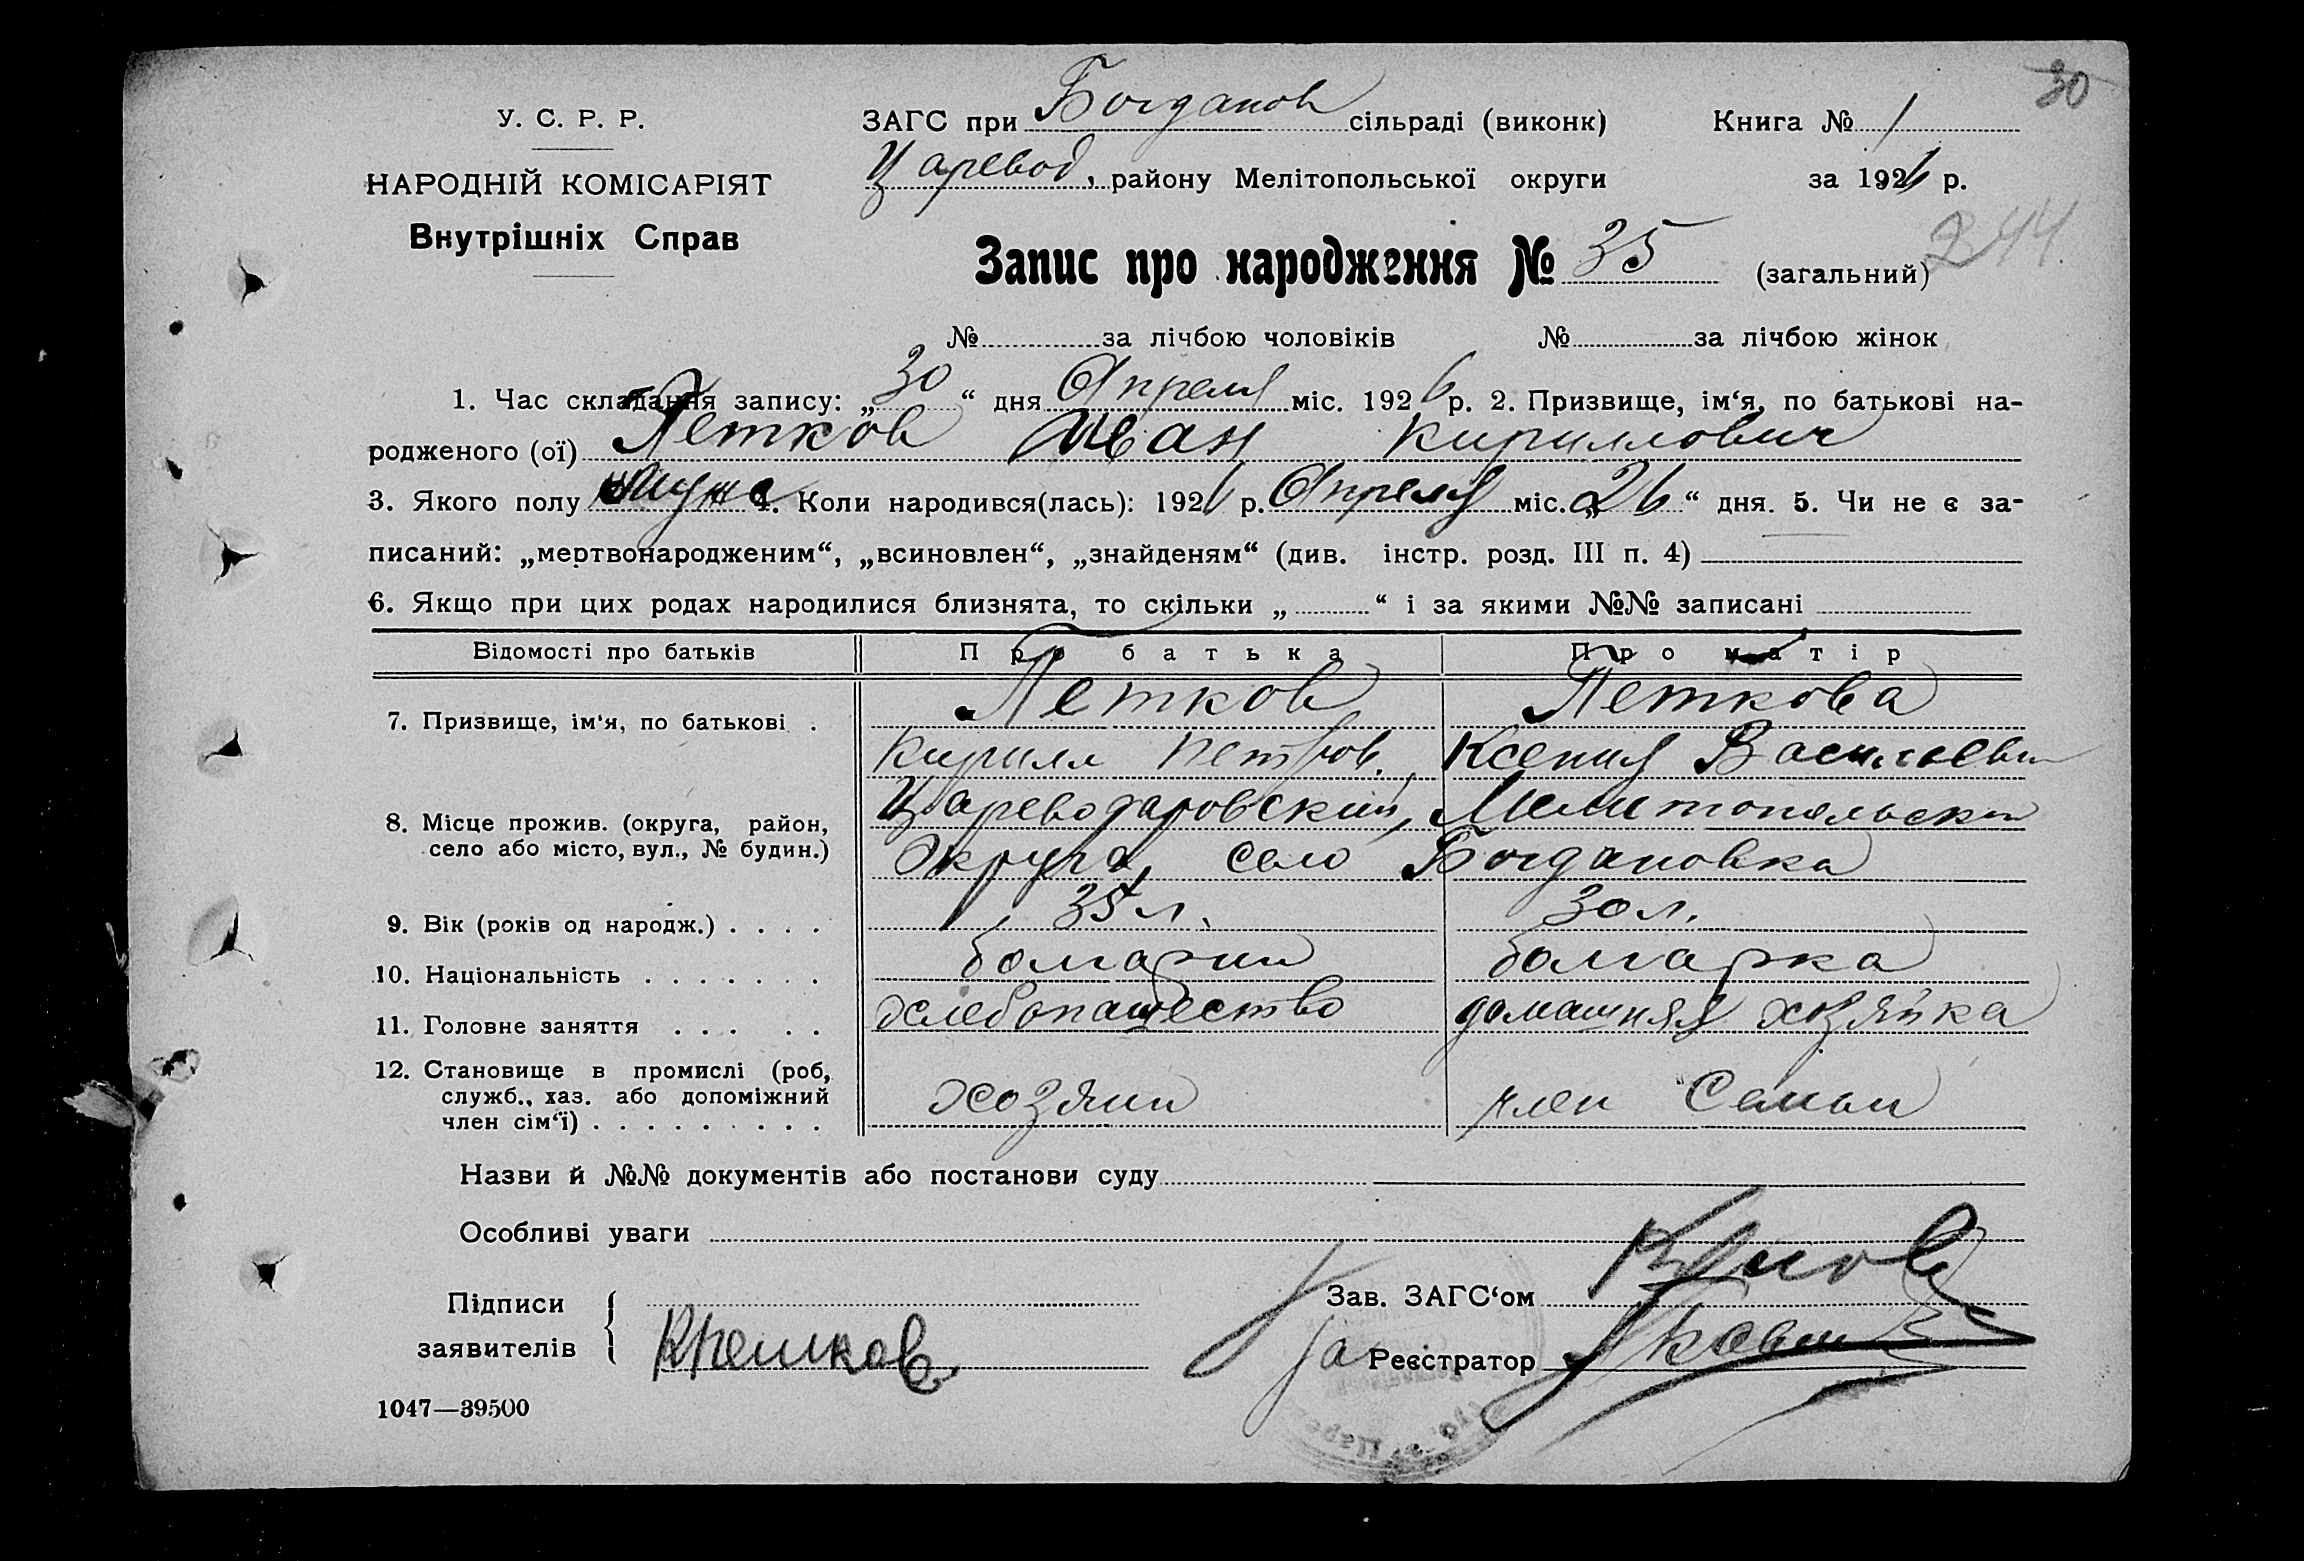 30
У. С. Р. Р.
НАРОДНІЙ КОМІСАРІЯТ
Внутрішніх Справ
ЗАГС при Богданов сільраді (виконк) Книга № 1
Царевод, району Мелітопольської округи за 1926 р.
Запис про народження № 35 (загальний) 244
№ за лічбою чоловіків № за лічбою жінок
1. Час складання запису: „30“ дня Апреля міс. 1926 р. 2. Призвище, ім‘я, по батькові на-
родженого (ої) Петков Иван Кириллович
3. Якого полу муж 4. Коли народився(лась): 1926 р. Апреля міс. „26“ дня. 5. Чи не є за-
писаний: „мертвонародженим“, „всиновлен“, „знайденям“ (див. інстр. розд. III п. 4)
6. Якщо при цих родах народилися близнята, то скільки „ “ і за якими №№ записані
Відомості про батьків Про батька Про матір
7. Призвище, ім‘я, по батькові . Петков Петкова
Кирилл Петров. Ксения Васильевн
8. Місце прожив. (округа, район, село або місто, вул., № будин.) Цареводаровский, Мелитопольский
Округа, село Богдановка
9. Вік (років од народж.) . . . . 35 л. 30 л.
10. Національність . . . . . . . болгарин болгарка
11. Головне заняття . . . . . хлебопашество домашняя хозяйка
12. Становище в промислі (роб,
служб., хаз. або допоміжний
член сім‘ї) . . . . . . . . . хозяин член Семьи
Назви й №№ документів або постанови суду
Особливі уваги
Підписи Зав. ЗАГС‘ом
заявителів КПетков Реєстратор
1047—39500